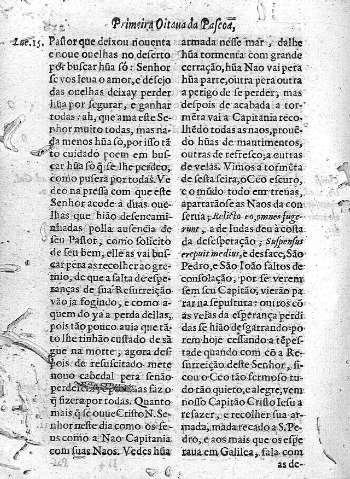 Primeira Oitaua da Pascoa,
Luc. 15.
Pastor que deixou nouenta
e noue ouelhas no deserto
por buscar hũa só: Senhor
se vos leua o amor, e desejo
das ouelhas deixay perder
hũa por segurar, e ganhar
todas: ah, que ama este Se-
nhor muito todas, mas na-
da menos hũa só, por isso tã-
to cuidado poem em bus-
car hũa só q̃ se lhe perdeo,
como pusera por todas. Ve-
deo na pressa com que este
Senhor acode a duas oue-
lhas que hião desencami-
nhadas polla ausencia de
seu Pastor, como solicito
de seu bem, elle as vai bus-
car pera as recolher ao gre-
mio, de que a falta de espe-
ranças de sua Resurreição
vão ja fogindo, e como a-
quem do ya a perda dellas,
pois tão pouco auia que tã-
to lhe tinhão custado de sã
gue na morte, agora des-
pois de resuscitado mete
nouo cabedal pera senão
as faz o
q̃ fizera por todas. Quanto
mais q̃ se ouue Cristo N. Se-
nhor neste dia como os se-
us como a Nao Capitania
com suas Naos. Vedes hũa
armada nesse mar, dalhe
hũa tormenta com grande
cerração, hũa Nao vai pera
hũa parte, outra pera outra
a perigo de se perder, mas
despois de acabada a tor-
mẽta vai a Capitania reco-
lhẽdo todas as naos, prouẽ-
do hũas de mantimentos,
outras de refresco, a outras
de velas. Vimos a tormẽta
de sesta feira, o Ceo escuro,
e o mũdo todo em treuas,
apartarãose as Naos da con
serua; Relicto eo, omnes fuge-
runt, a de Iudas deu à costa
da desesperação; Suspensus
crepuit medius, e desfacc, São
Pedro, e São Ioão faltos de
consolação, por se verem
sem seu Capitão, vierão pa-
rar na sepultura: outros cõ
as velas da esperança perdi
das se hião desgarrando: po-
rem hoje cessando a tẽpes-
tade quando com a Re-
surreição deste Senhor, fi-
cou o Ceo tão fermoso tu-
do tão quieto, e alegre, vem
pois o Capitão Cristo Iesu a
refazer, e recolher sua ar-
mada, mãda recado a S. Pe-
dro, e aos mais que os espe-
raua em Galilea, fala com
as de-